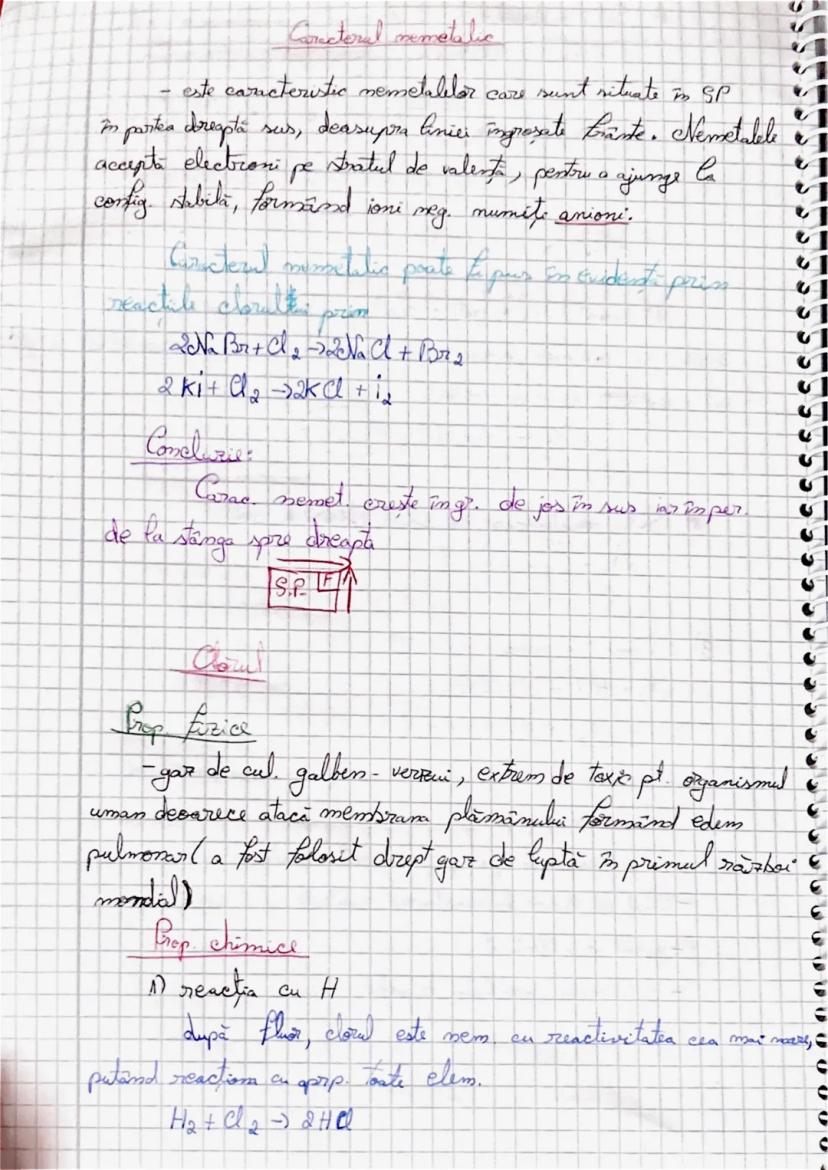 Caracterul nemetalic
- este caracteristic nemetalelor care sunt situate în SP
în partea dreaptă sus, deasupra liniei îngroșate frânte. Nemetalele
acceptă electroni pe stratul de valență, pentru a ajunge la
config. stabilă, formând ioni neg. numiți anioni.
Caracterul nemetalic poate fi pus în evidență prin
reacțiile clorului prin
2NaBr + Cl2 -> 2NaCl + Br2
2Ki + Cl2 -> 2KCl + i2
Concluzie:
Carac. nemet. crește în gr. de jos în sus iar în per.
de la stânga spre dreapta
S.P. F
Clorul
Prop. fizice
- gaz de cul. galben - verzui, extrem de toxic pt. organismul
uman deoarece atacă membrana plămânului formând edem
pulmonar ( a fost folosit drept gaz de luptă în primul război
mondial)
Prop. chimice
1) reacția cu H
după fluor, clorul este nem. cu reactivitatea cea mai mare,
putând reacționa cu aprp. toate elem.
H2 + Cl2 -> 2HCl